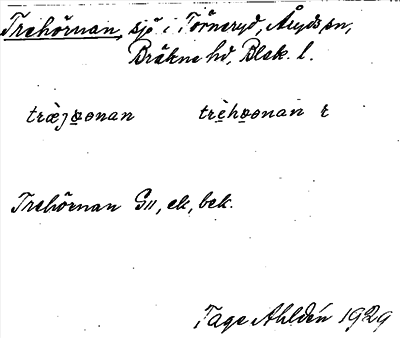 Trehörnan, sjö i Törneryd, Åryds sn,
Bräkne hd, Blek. l.
træ̀jo̤onan trèho̤onan r
Trehörnan G11, ek, bek.
Tage Ahldén 1929